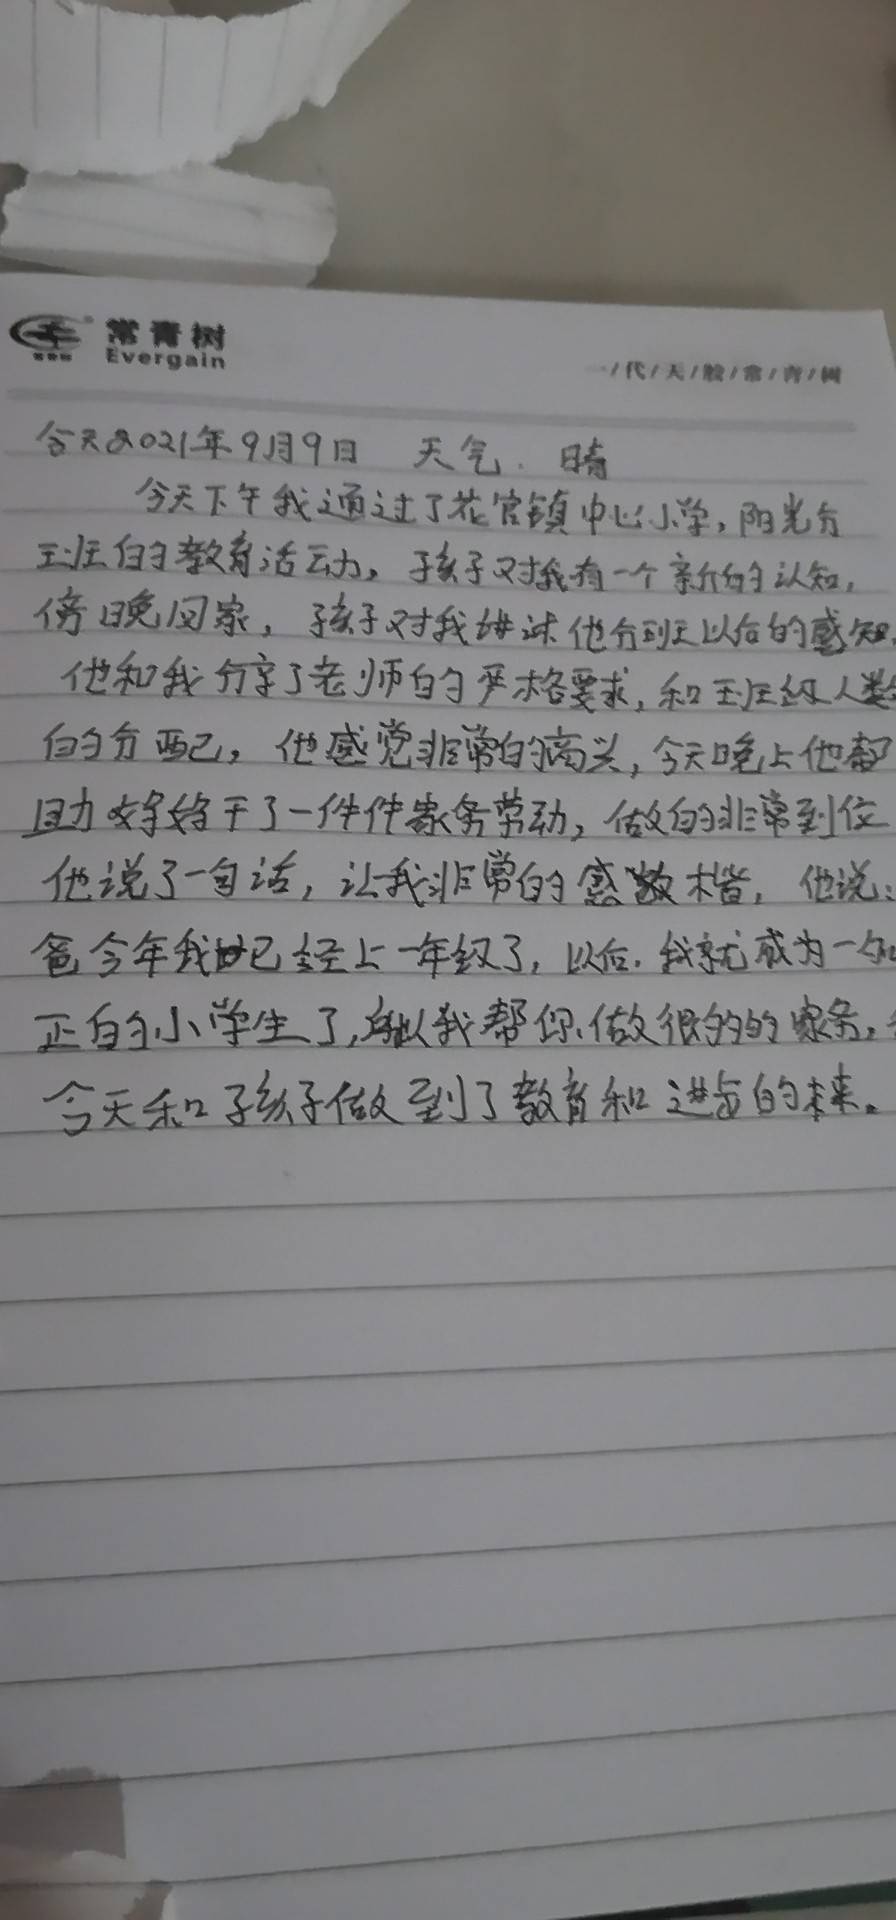 常青树
Evergain
一/代/天/骄/常/青/树
今天2021年9月9日 天气. 晴
今天下午我通过了花官镇中心小学,阳光分
班的教育活动,孩子对我有一个新的认知,
傍晚回家,孩子对我讲述他分班以后的感知,
他和我分享了老师的严格要求,和班级人数
的分配,他感觉非常的高兴,今天晚上他帮
助妈妈干了一件件家务劳动,做的非常到位
他说了一句话,让我非常的感 他说:
爸今年我已经上一年级了,以后.我就成为一
正的小学生了,所以我帮你做很多的家务,
今天和孩子做到了教育和进步的未来。